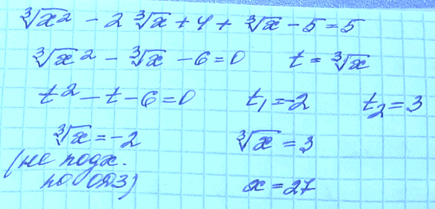 ∛x² - 2 ∛x + 4 + ∛x - 5 = 5
∛x² - ∛x - 6 = 0 t = ∛x
t² - t - 6 = 0 t₁ = -2 t₂ = 3
∛x = -2 ∛x = 3
(не подх.
по ОДЗ) x = 27